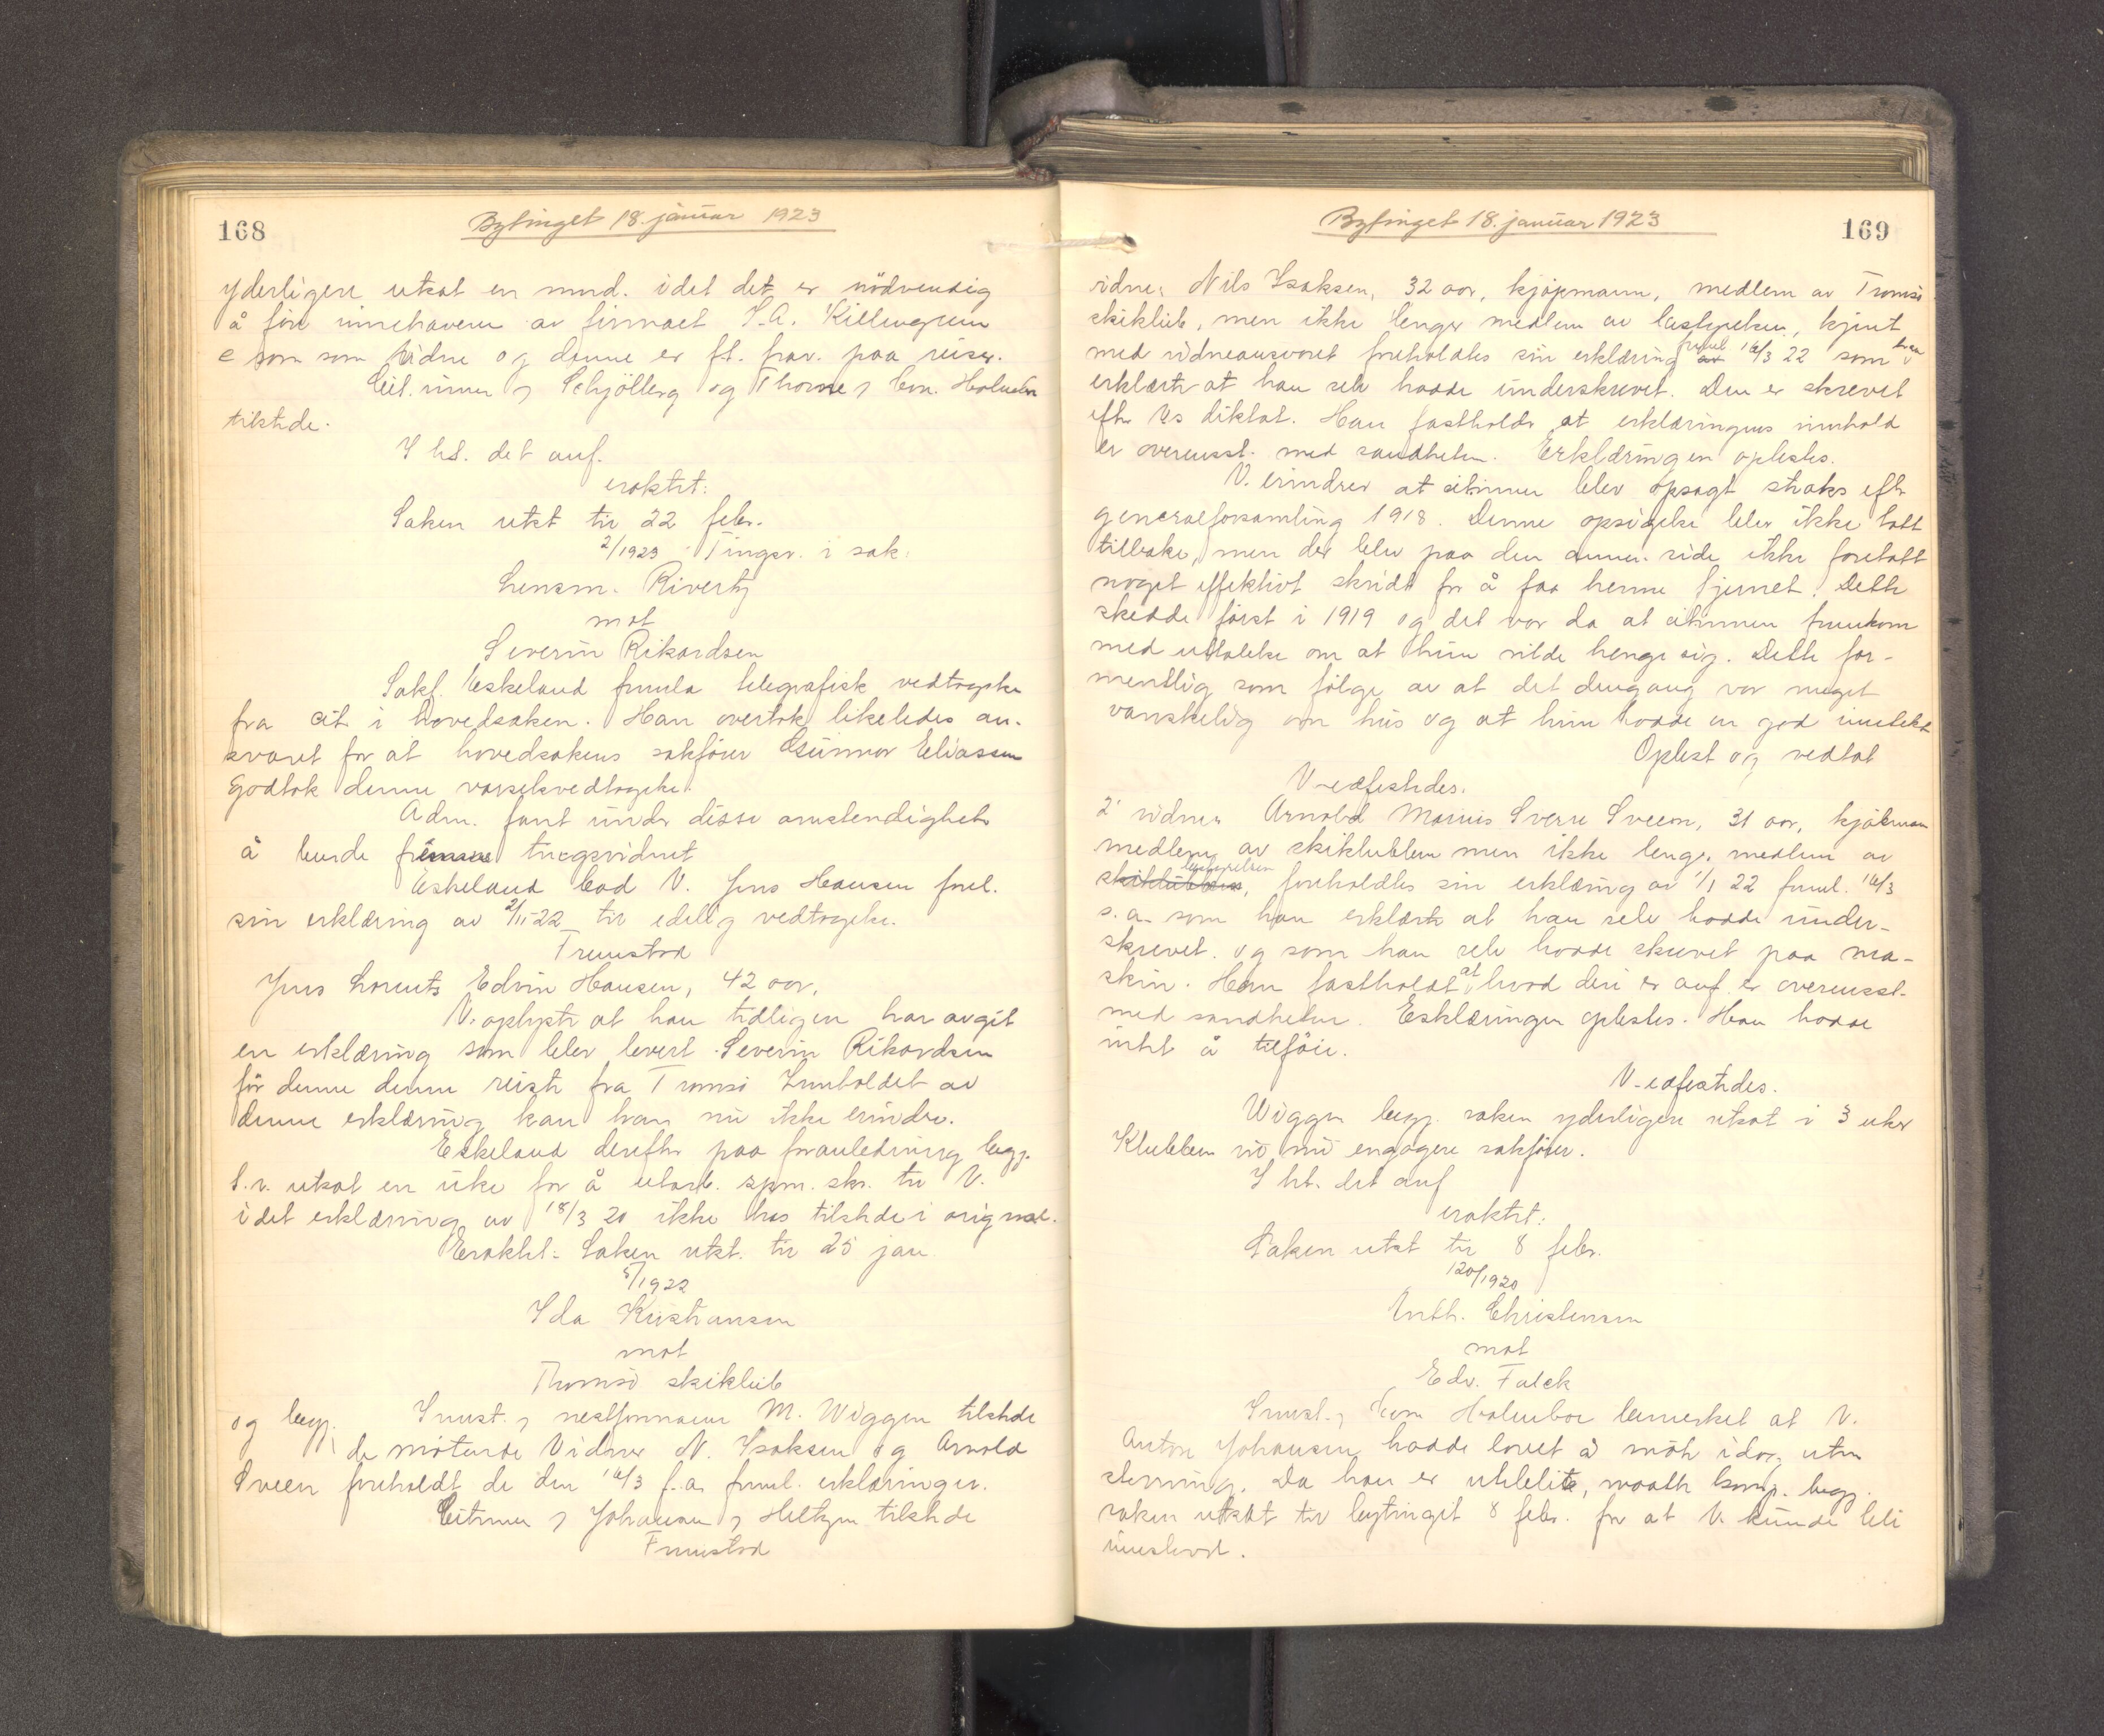 168
Bytinget 18. januar 1923
yderligere utsat en mnd. idet det er nødvendig
å føre innehaveren av firmaet S.A. Killengreen
som vidne og denne er ft. frav. paa reise.
Cit. innen, Schjølberg og Thorne, Con. Holmboe
tilstede.
I ht. det anf.
eraktet:
Saken utst til 22 febr.
2/1923 Tingsv. i sak:
Lensm. Rivertz
mot
Severin Rikardsen
Sakf. Eskeland freml. telegrafisk vedtagelse
fra cit. i hovedsaken. Han overtok likeledes an-
svaret for at hovedsakens sakfører Gunnar Eliassen
godtok denne varselsvedtagelse.
Adm. fant under disse omstendigheter
å burde fremme tingsvidnet
Eskeland bad V. Jens Hansen forel.
sin erklæring av 2/11-22 til edelig vedtagelse.
Fremstod
Jens Lorents Edvin Hansen, 42 aar,
V. oplyste at han tidligere har avgit
en erklæring som blev levert Severin Rikardsen
før denne denne reiste fra Tromsø Innholdet av
denne erklæring kan han nu ikke erindre.
Eskeland derefter paa foranledning begj.
s.v. utsat en uke for å utarb. spm. skr. til V.
idet erklæring av 18/3 20 ikke has tilstede i original.
Eraktet: Saken utst. til 25 jan
5/1922
Ida Kristiansen
mot
Tromsø skiklub
Innst., nestformann M. Wiggen tilstede
og begj. de møtende Vidner N. Isaksen og Arnold
Sveen foreholdt de den 16/3 f.a. freml. erklæringer.
Citinnen, Johansen, Heltzen tilstede
Fremstod
169
Bytinget 18. januar 1923
vidne: Nils Isaksen, 32 aar, kjøpmann, medlem av Tromsø
skiklub, men ikke lenger medlem av bestyrelsen, kjent
med vidneansvaret foreholdtes sin erklæring av freml 16/3 22 som han
erklærte at han selv hadde underskrevet. Den er skrevet
efter Vs diktat. Han fastholdt at erklæringens innhold
er overensst. med sandheten. Erklæringen oplestes.
V. erindrer at citinnen blev opsagt straks efter
generalforsamling 1918. Denne opsigelse blev ikke tatt
tilbake, men der blev paa den annen side ikke foretatt
noget effektivt skridt for å faa henne fjernet. Dette
skedde først i 1919 og det var da at citinnen fremkom
med uttalelse om at hun vilde henge sig. Dette for-
mentlig som følge av at det dengang var meget
vanskelig om hus og at hun hadde en god inntekt
Oplest og vedtat
V-edfestedes.
2' vidne: Arnold Marius Sverre Sveen, 31 aar, kjøbmann
medlem av skiklubben men ikke lenger medlem av
skiklubben bestyrelsen, foreholdtes sin erklæring av 1/1 22 freml. 16/3
s.a. som han erklærte at han selv hadde under-
skrevet. og som han selv hadde skrevet paa ma-
skin. Han fastholdt at hvad deri er anf. er overensst.
med sandheten. Erklæringen oplestes. Han hadde
intet å tilføie.
V-edfestedes.
Wiggen begj. saken yderligere utsat i 3 uker
Klubben vil nu engagere sakfører.
I ht. det anf
eraktet:
Saken utsat til 8 febr.
120/1920
Anth. Christensen
mot
Edv. Falck
Innst., Con Holmboe bemerket at V.
Anton Johansen hadde lovet å møte idag uten
stevning. Da han er uteblitt, maatte komp. begj.
saken utsat til bytinget 8 febr. for at V. kunde bli
innstevnt.